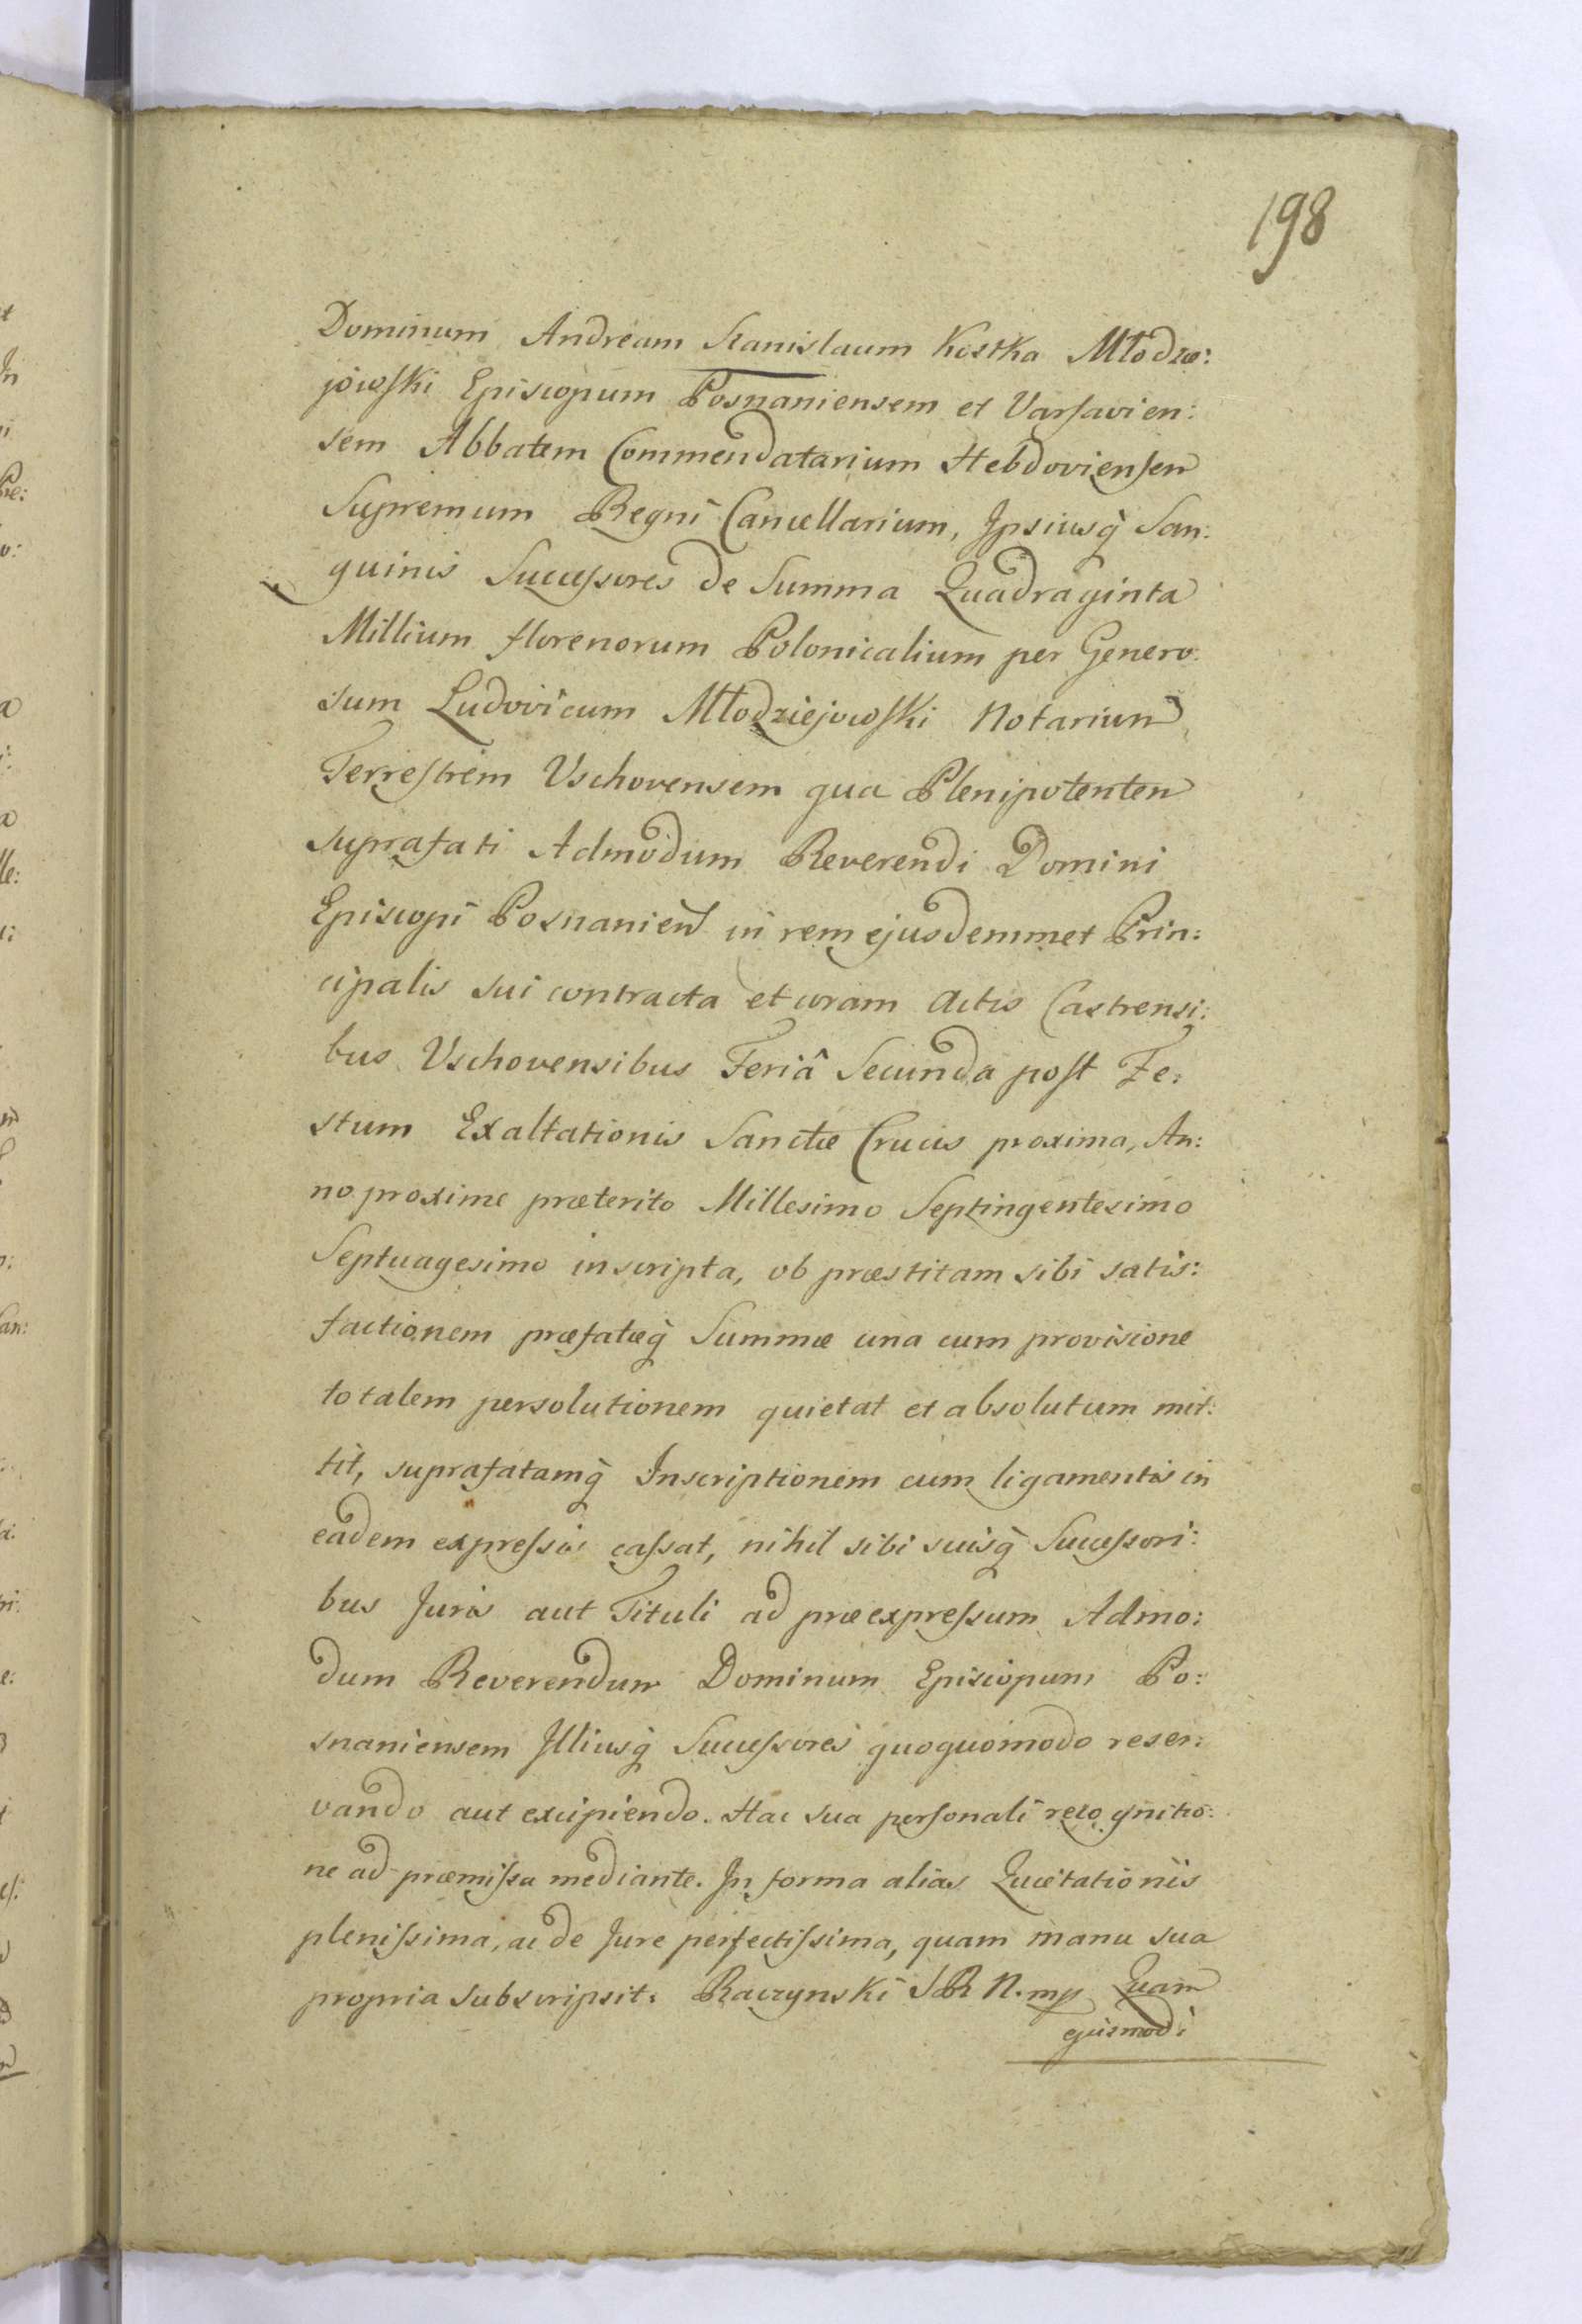 198
Dominum Andream Stanislaum Kostka Młodze:
jowski Episcopum Posnaniensem et Varsavien:
sem Abbatem Commendatarium Hebdoviensem
Supremum Regni Cancellarium, Ipsiusq̀ San:
guinis Successores de Summa Quadraginta
Millium florenorum Polonicalium per Genero:
sum Ludovicum Młodziejowski Notarium
Terrestrem Vschovensem qua Plenipotentem
suprafati Admodum Reverendi Domini
Episcopi Posnanien in rem ejusdemmet Prin:
cipalis sui contracta et coram Actis Castrensi:
bus Vschovensibus Feriâ Secunda post Fe:
stum Exaltationis Sanctæ Crucis proxima, An:
no proxime præterito Millesimo Septingentesimo
Septuagesimo inscripta, ob præstitam sibi satis:
factionem præfatæq̀ Summæ una cum provisione
totalem persolutionem quietat et absolutum mit:
tit, suprafatamq̀ Inscriptionem cum ligamentis in
eadem expressis cassat, nihil sibi suisq̀ Successori:
bus Juris aut Tituli ad præexpressum Admo:
dum Reverendum Dominum Episcopum Po:
snaniensem Illiusq̀ Successores quoquomodo reser:
vando aut excipiendo. Hac sua personali recognitio:
ne ad præmissa mediante. In forma alias Quietationis
plenissima, ac de Jure perfectissima, quam manu sua
propria subscripsit. Raczynski SRN. mp Quam
ejusmodi